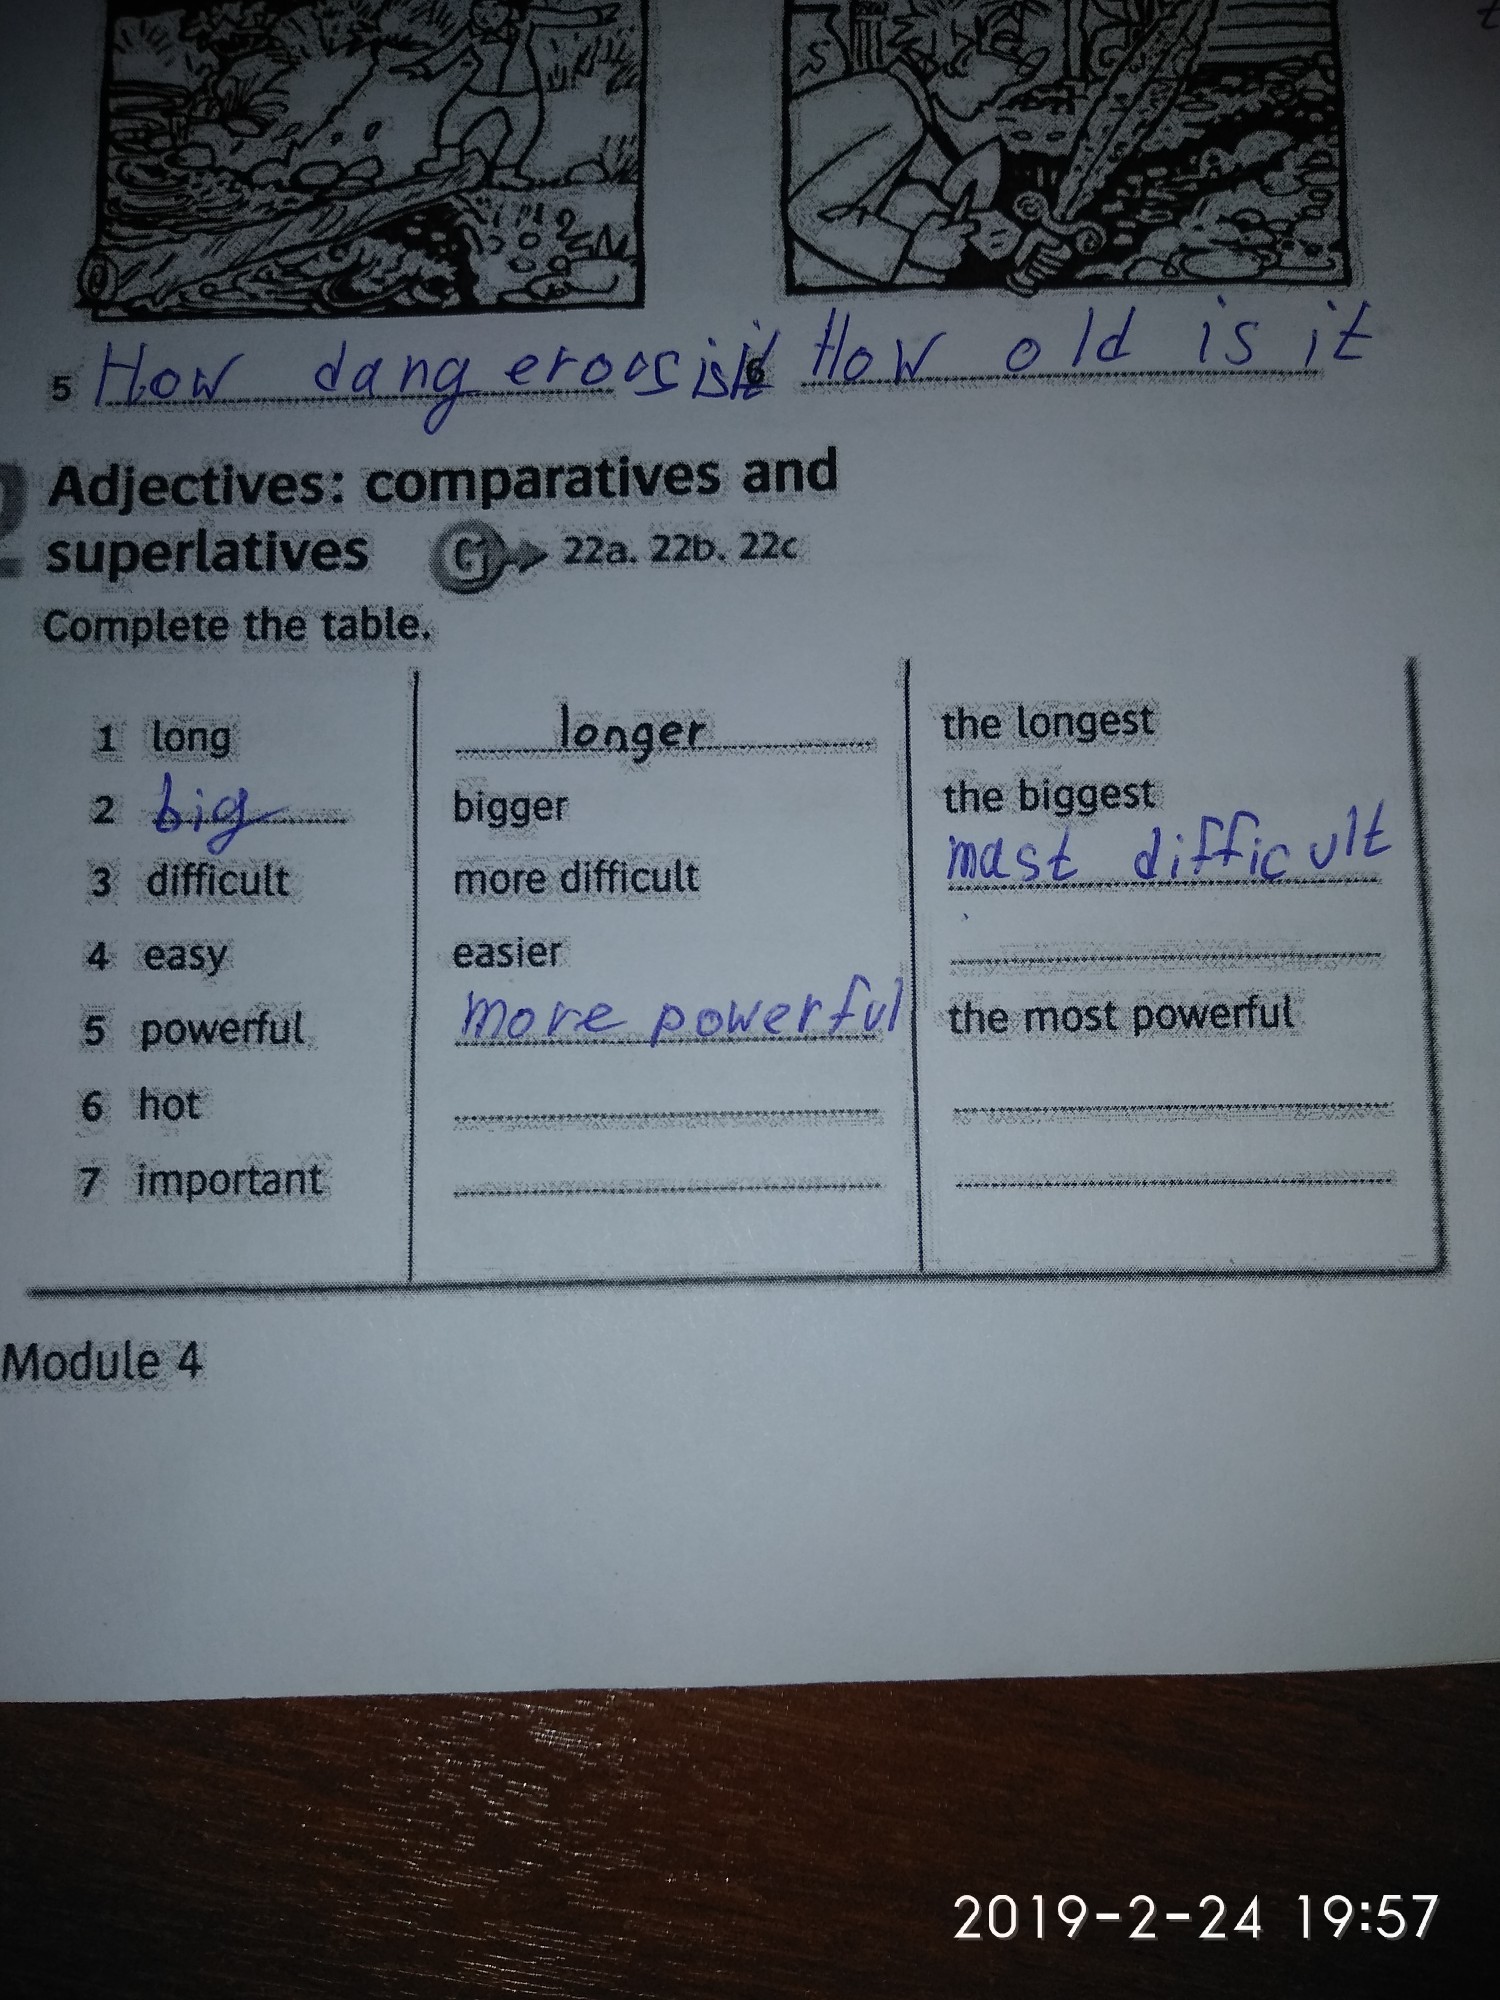 5 How dangeroos is it 6 How old is it
Adjectives: comparatives and
superlatives G 22a. 22b. 22c
Complete the table.
1 long longer the longest
2 big bigger the biggest
3 difficult more difficult mast difficult
4 easy easier
5 powerful more powerful the most powerful
6 hot
7 important
Module 4
2019-2-24 19:57